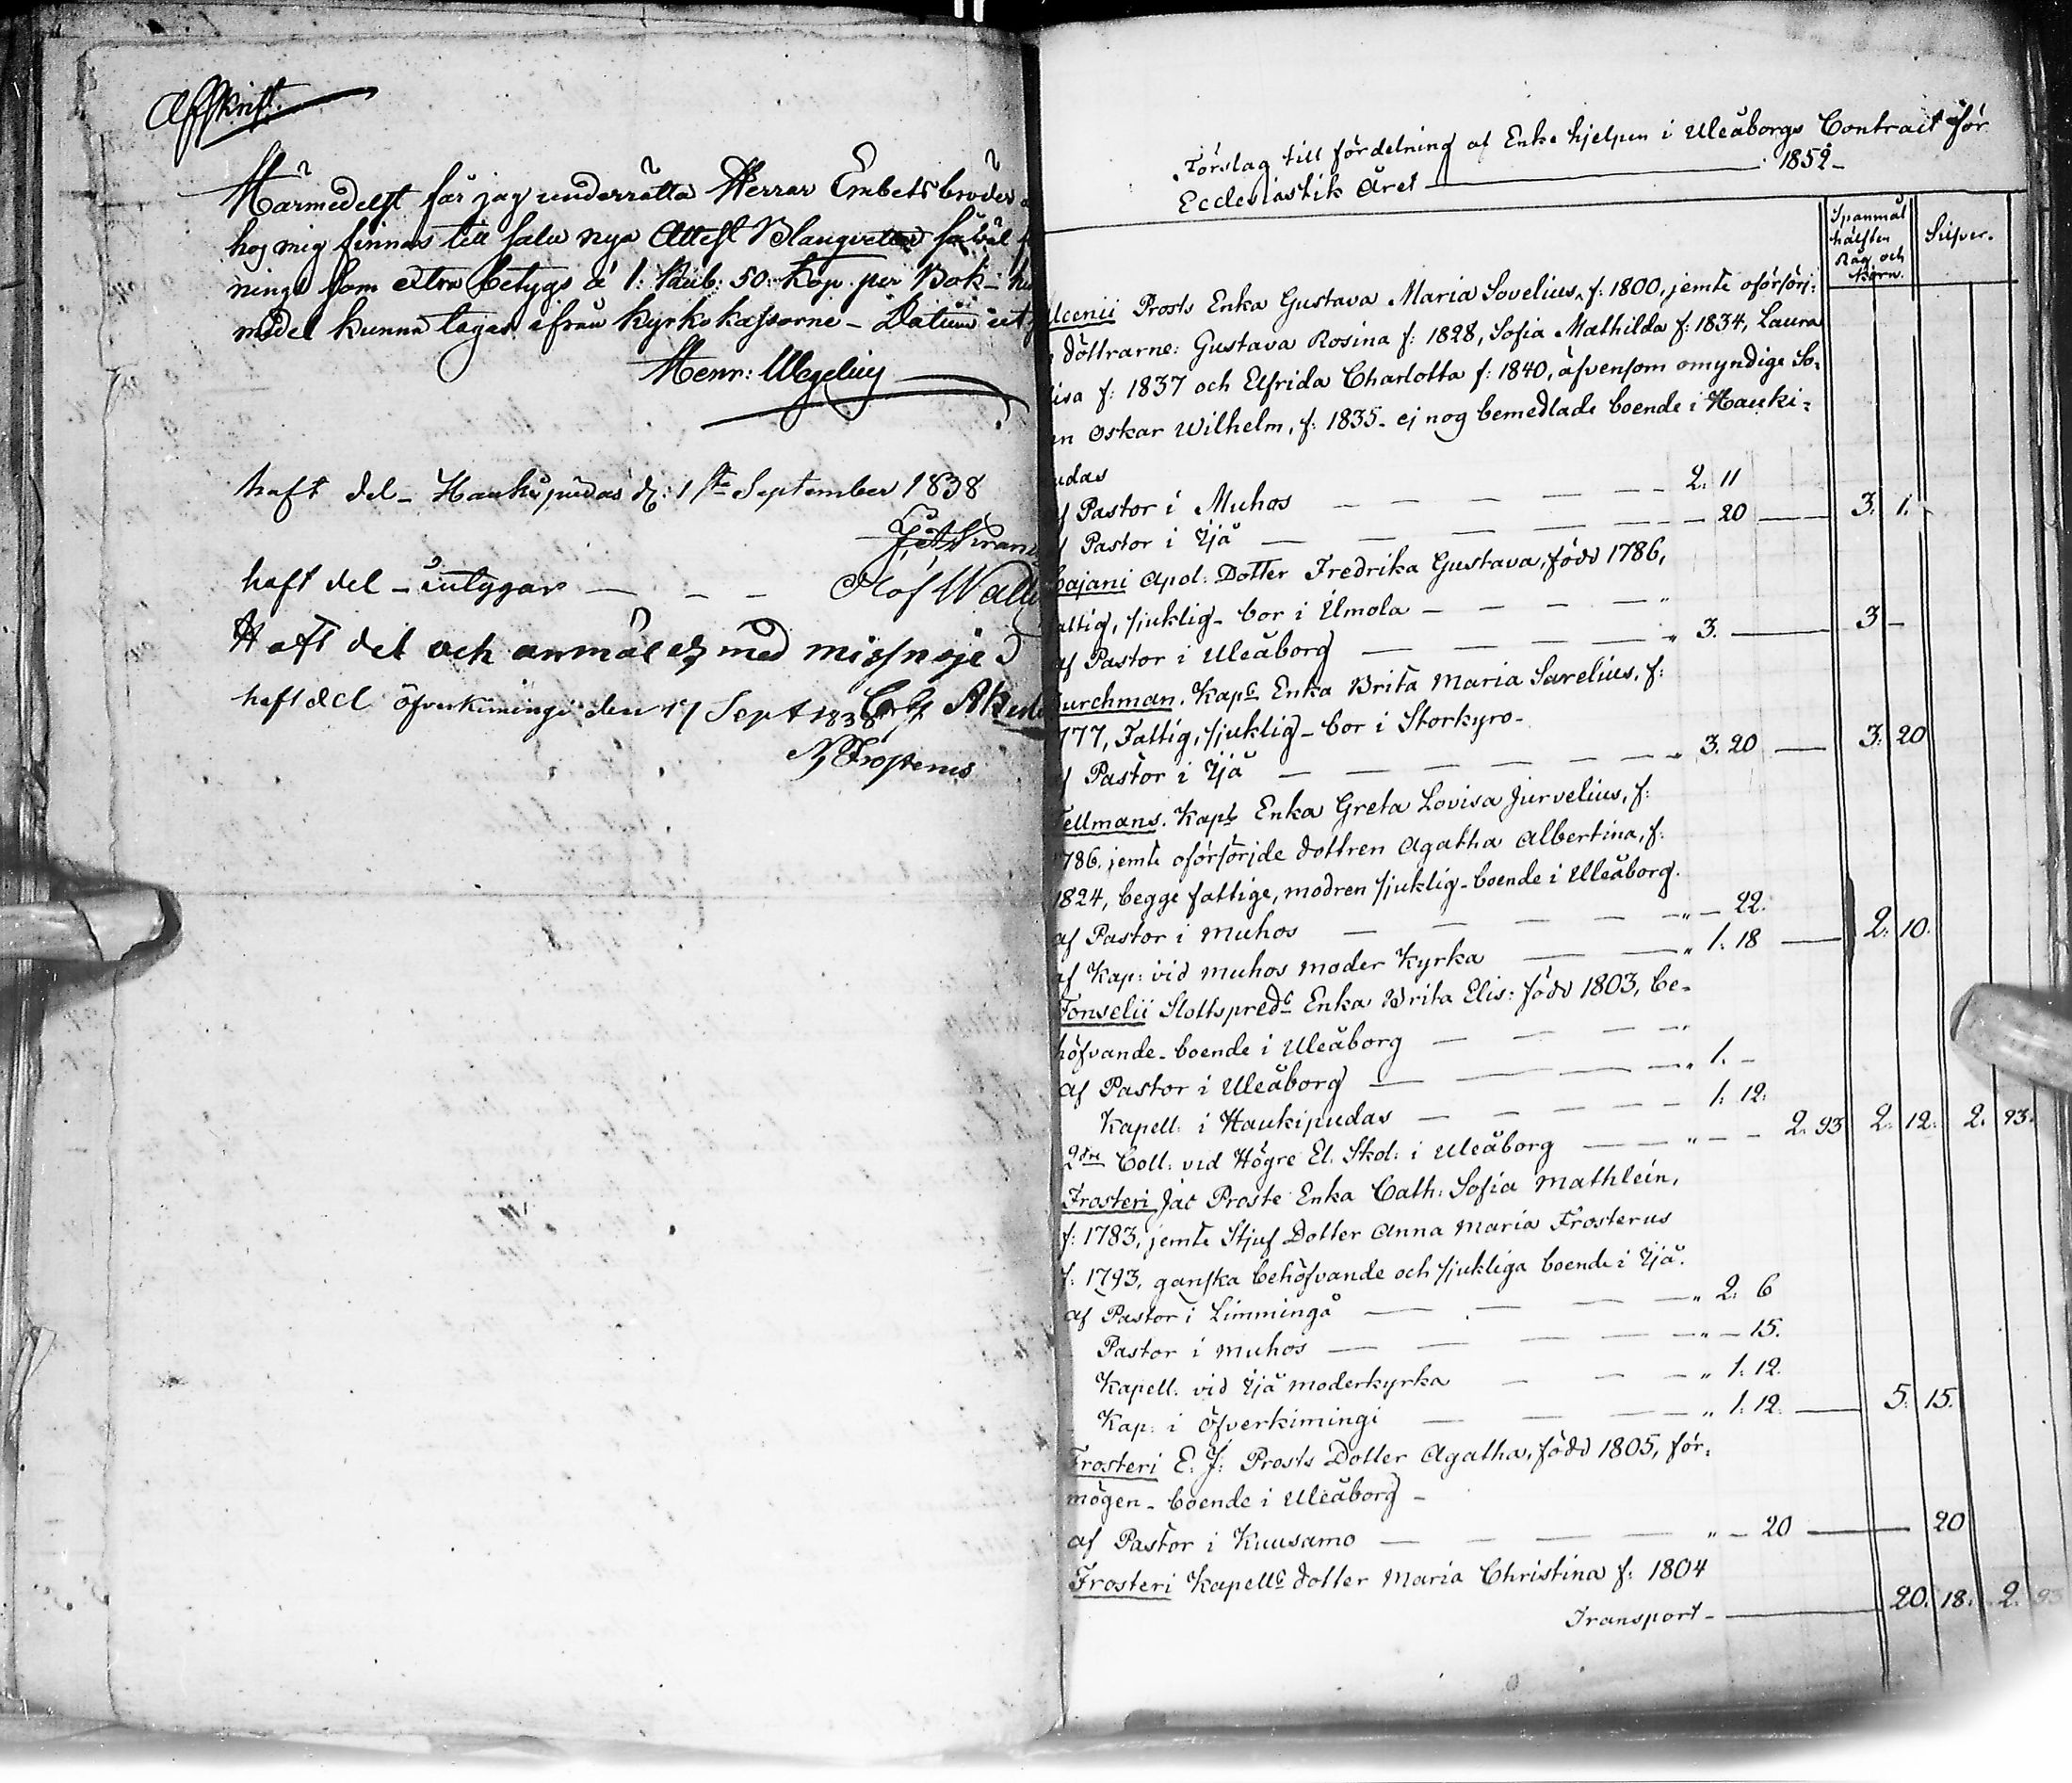 Afskrift.
Härmedelst får jag underrätta Herrar Embetsbröder
hos mig finnas till salu nya Attest Blanquetter såväl
nings som extra betygs á 1: Rub: 50: Kop. per Bok
medel kunna tagas ifrån Kyrko kassorne – Datum ut
Henr: Wegelius
haft del – Haukipudas d: 1ste September 1838
haft del – intygar — – – Olof
Haft del och anmäles med missnöje
haft del öfverkimingi den 17 Sept 1838
Frosterus
Förslag till fördelning af Enke hjelpen i Uleåborgs Contract för
Ecclesiastik Året — 1852 –
Spanmål hälften Råg och Korn. Silfver.
Prosts Enka Gustava Maria Sovelius, f: 1800, jemte oförsörj:
döttrarne: Gustava Rosina f: 1828, Sofia Mathilda f: 1834, Laura
isa f: 1837 och Elfrida Charlotta f: 1840, äfvensom omyndige So:
n Oskar Wilhelm, f: 1835 – ej nog bemedlade boende i Hauki:
udas
f Pastor i Muhos — — — — 2. 11
Pastor i Ijå — — — — 20 — 3. 1. –
Cajani Apol: Dotter Fredrika Gustava, född 1786,
attig, sjuklig – bor i Ilmola — — — —
af Pastor i Uleåborg — — — " 3. — 3 –
urchman. Kaps Enka Brita Maria Sarelius, f:
777, Fattig, sjuklig – bor i Storkyro –
f Pastor i Ijå — — — — " 3. 20 — 3. 20
ellmans. Kaps Enka Greta Lovisa Jurvelius, f:
786. jemte oförsörjde dottren Agatha Albertina, f:
1824, begge fattige, modren sjuklig – boende i Uleåborg.
af Pastor i Muhos — — — — " – 22.
af Kap: vid Muhos moder Kyrka — — " 1. 18 — 2. 10.
Fonselii Slottspreds Enka Brita Elis: född 1803, be-
höfvande – boende i Uleåborg — — — "
af Pastor i Uleåborg — — — " 1. –
Kapell: i Haukipudas — — — — 1. 12.
2dre Coll: vid Högre El. Skol: i Uleåborg — — " – – 2. 93 2. 12. 2. 93.
Frosteri Jac Prosts Enka Cath: Sofia Mathlein,
f: 1783, jemte Stjuf Dotter Anna Maria Frosterus
f: 1793, ganska behöfvande och sjukliga boende i Ijå.
af Pastor i Limmingå — — — " 2. 6
Pastor i Muhos — — — " – 15.
Kapell: vid Ijå moderkyrka — — " 1. 12.
Kap: i Öfverkimingi — — — " 1. 12. — 5. 15.
Frosteri E: J: Prosts Dotter Agatha, född 1805, för:
mögen – boende i Uleåborg –
af Pastor i Kuusamo — — — " – 20 — 20
Frosteri Kapells dotter Maria Christina f: 1804
Transport – — 20. 18. 2. 93